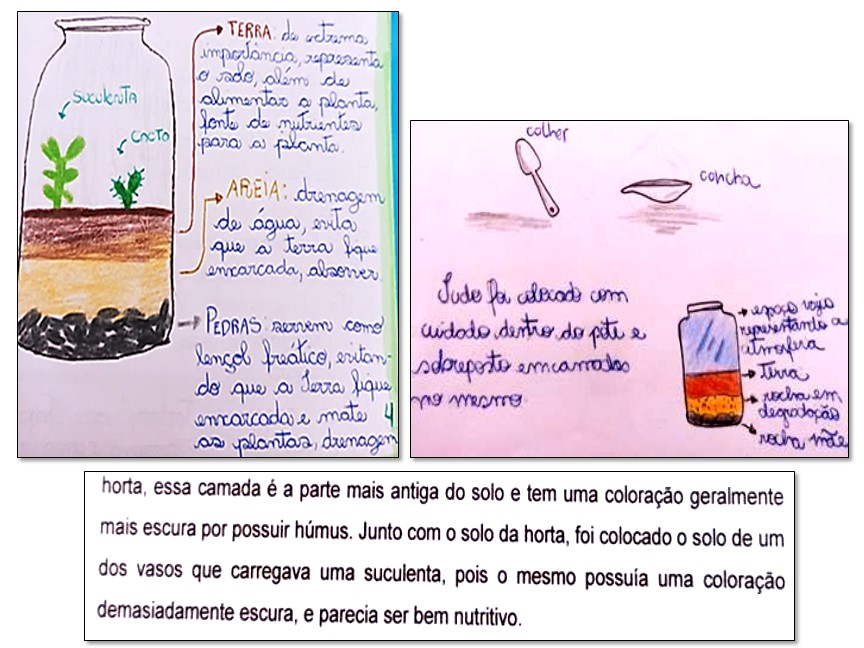 TERRA: de extrema
importância, representa
o solo, além de
alimentar a planta,
fonte de nutrientes
para a planta.
SUCULENTA
CACTO
AREIA: drenagem
de água, evita
que a terra fique
encarcada, absorver.
PEDRAS: servem como
lençol freático, evitan-
do que a terra fique
encarcada e mate
as plantas, drenagem
4
colher
concha
Tudo foi colocado com
cuidado dentro do pote e
sobreposto em camadas
no mesmo
espaço vazio
representando a
atmosfera
terra
rocha em
degradação
rocha mãe
horta, essa camada é a parte mais antiga do solo e tem uma coloração geralmente
mais escura por possuir húmus. Junto com o solo da horta, foi colocado o solo de um
dos vasos que carregava uma suculenta, pois o mesmo possuía uma coloração
demasiadamente escura, e parecia ser bem nutritivo.